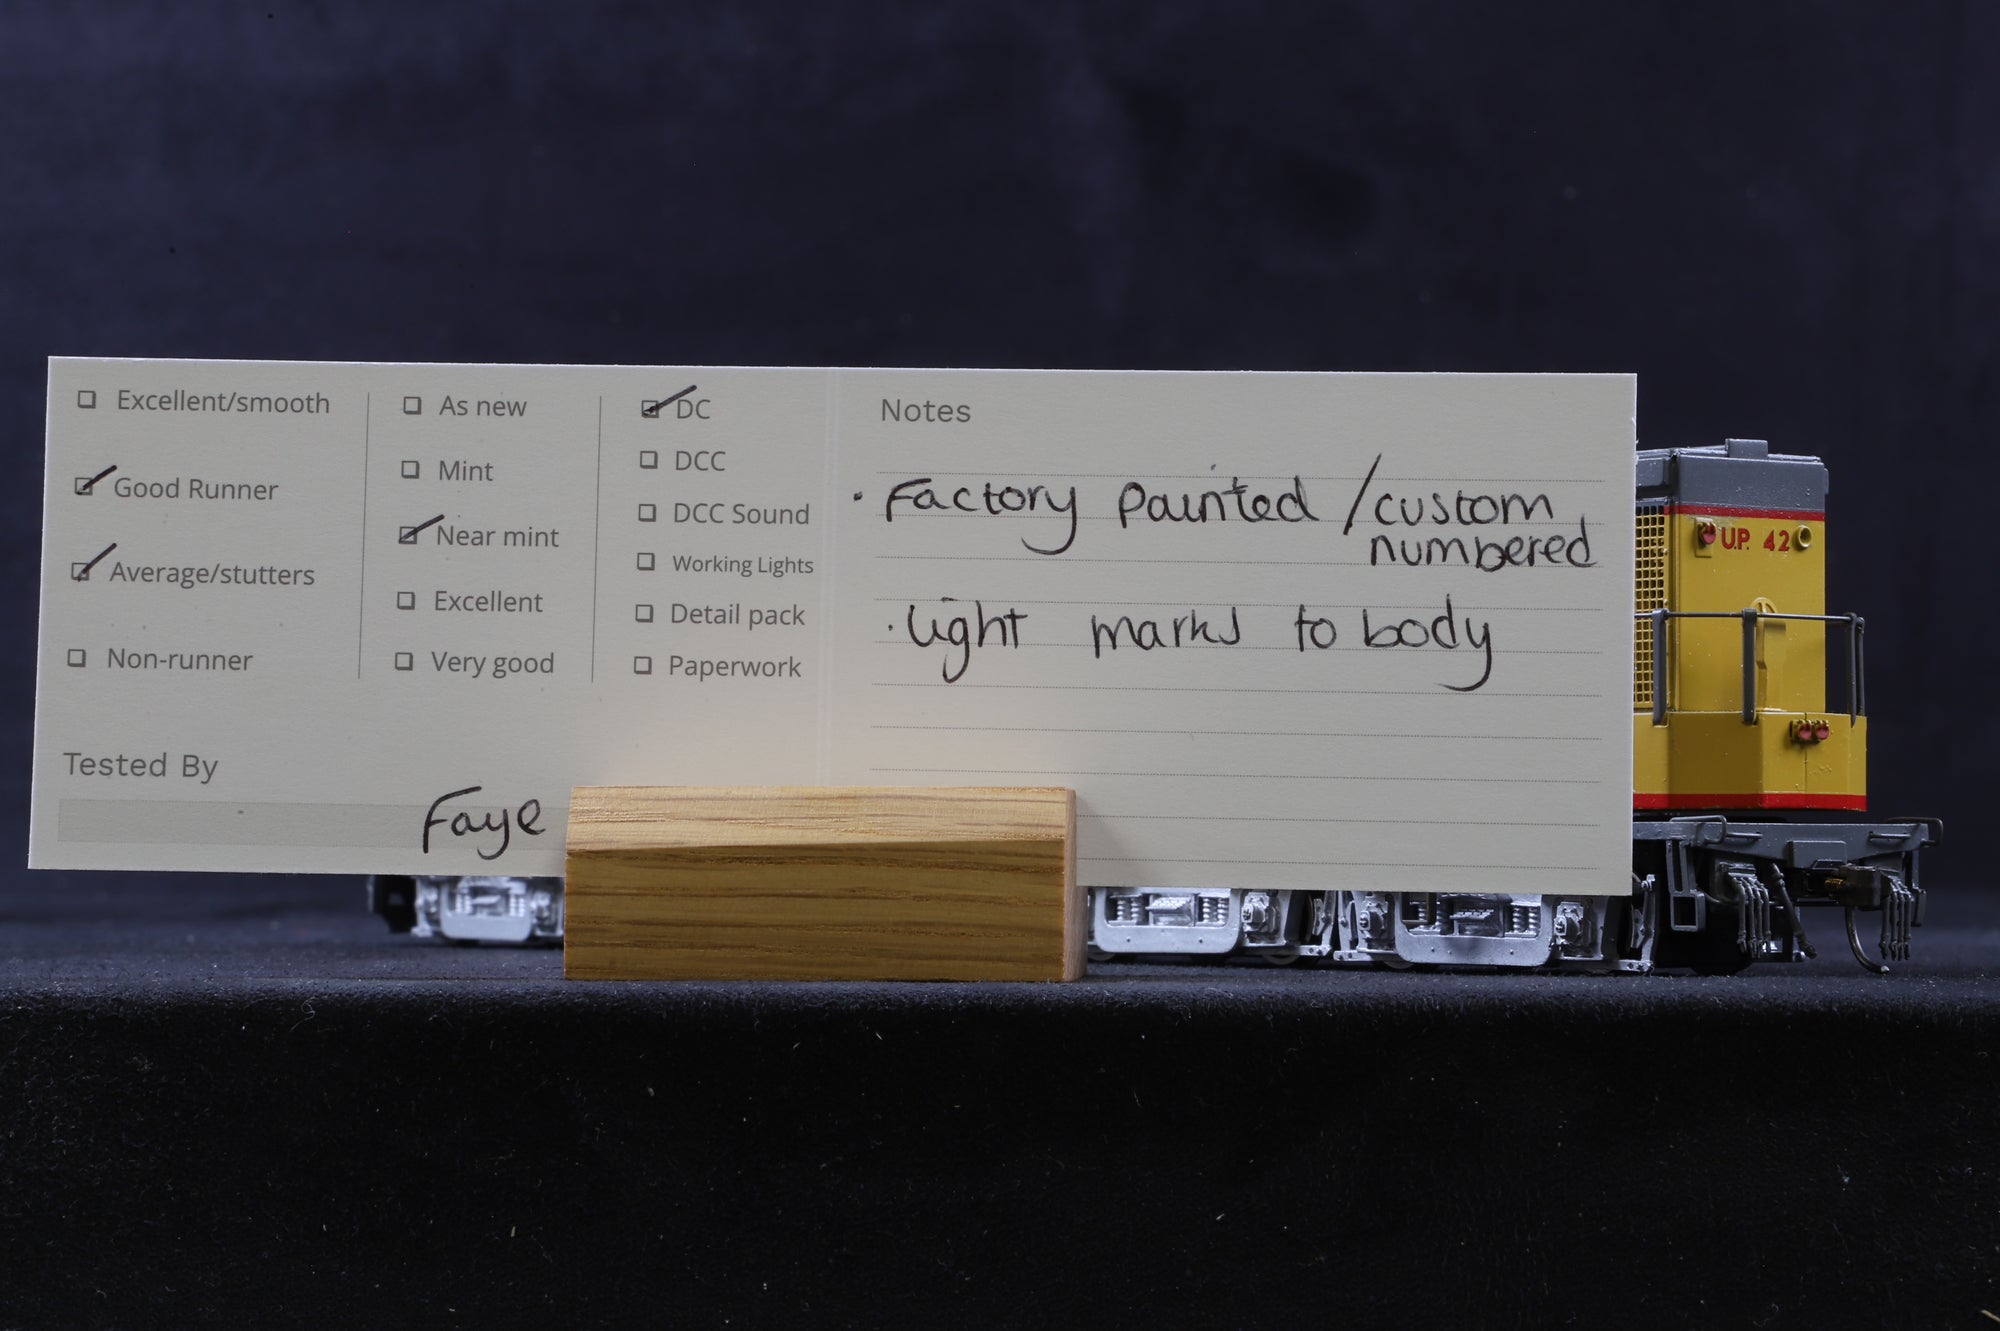 Excellent/smooth
Good Runner
Average/stutters
Non-runner
As new
Mint
Near mint
Excellent
Very good
DC
DCC
DCC Sound
Working Lights
Detail pack
Paperwork
Tested By
Faye
Notes
• Factory painted / custom
numbered
• light marks to body
U.P. 42